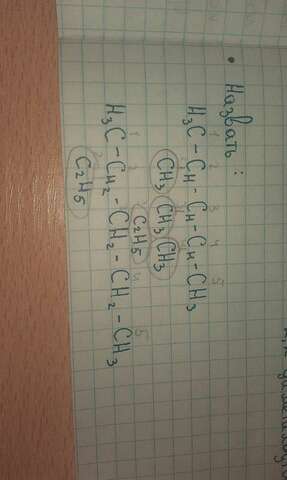 Назвать:
1 2 3 4 5
H₃C-CH-CH-CH-CH₃
CH₃ CH₃ CH₃
1
H₃C-CH₂-CH₂-CH₂-CH₃
C₂H₅ C₂H₅